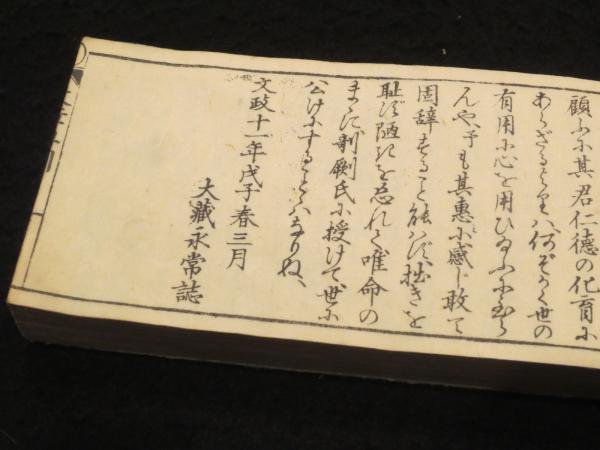 顧ふに其君仁徳の化育に
あらざるよりハ何ぞかく世の
有用に心を用ひ
んや予も其惠に感じ敢て
固辞すること能ハず拙きを
耻ず陋きを忘れて唯命の
まゝに剞劂氏に授けて世に
公けにすることハなりぬ、
文政十一年戊子春三月
大藏永常誌